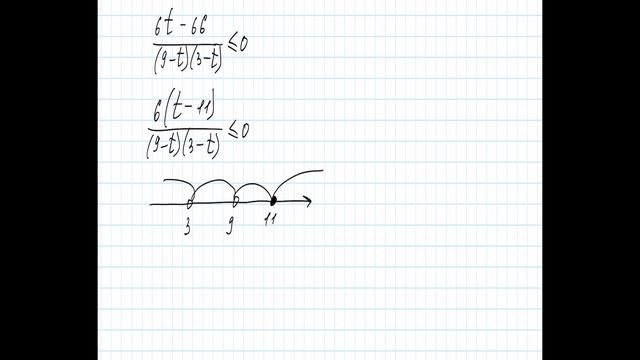 (6t-66)/((9-t)(3-t)) ≤ 0
6(t-11)/((9-t)(3-t)) ≤ 0
3 9 11